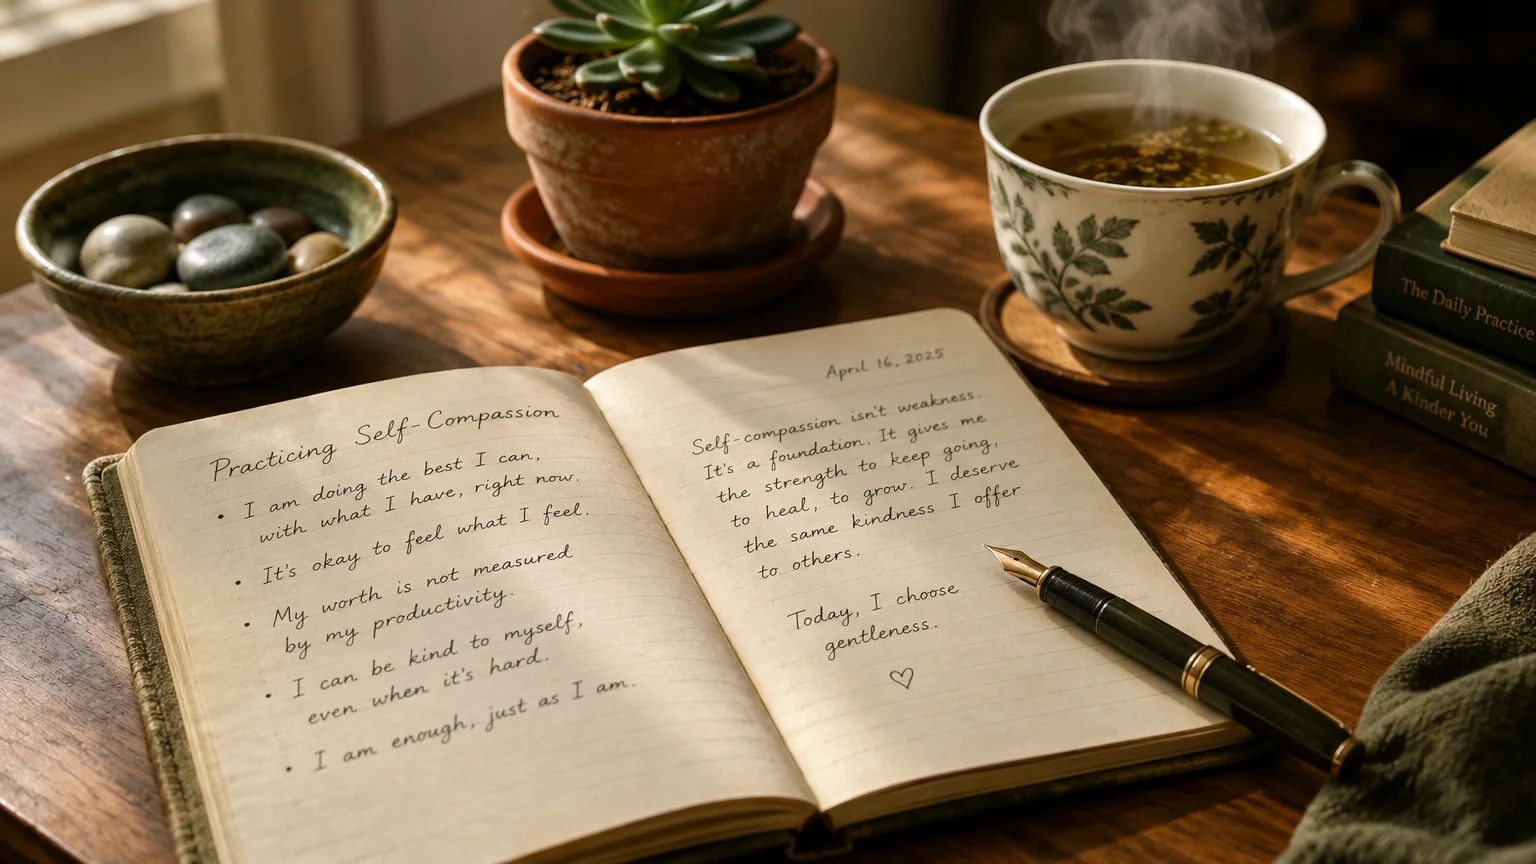 Practicing Self-Compassion
• I am doing the best I can,
with what I have, right now.
• It's okay to feel what I feel.
• My worth is not measured
by my productivity.
• I can be kind to myself,
even when it's hard.
• I am enough, just as I am.
April 16, 2025
Self-compassion isn't weakness.
It's a foundation. It gives me
the strength to keep going,
to heal, to grow. I deserve
the same kindness I offer
to others.
Today, I choose
gentleness.
♡
The Daily Practice
Mindful Living
A Kinder You